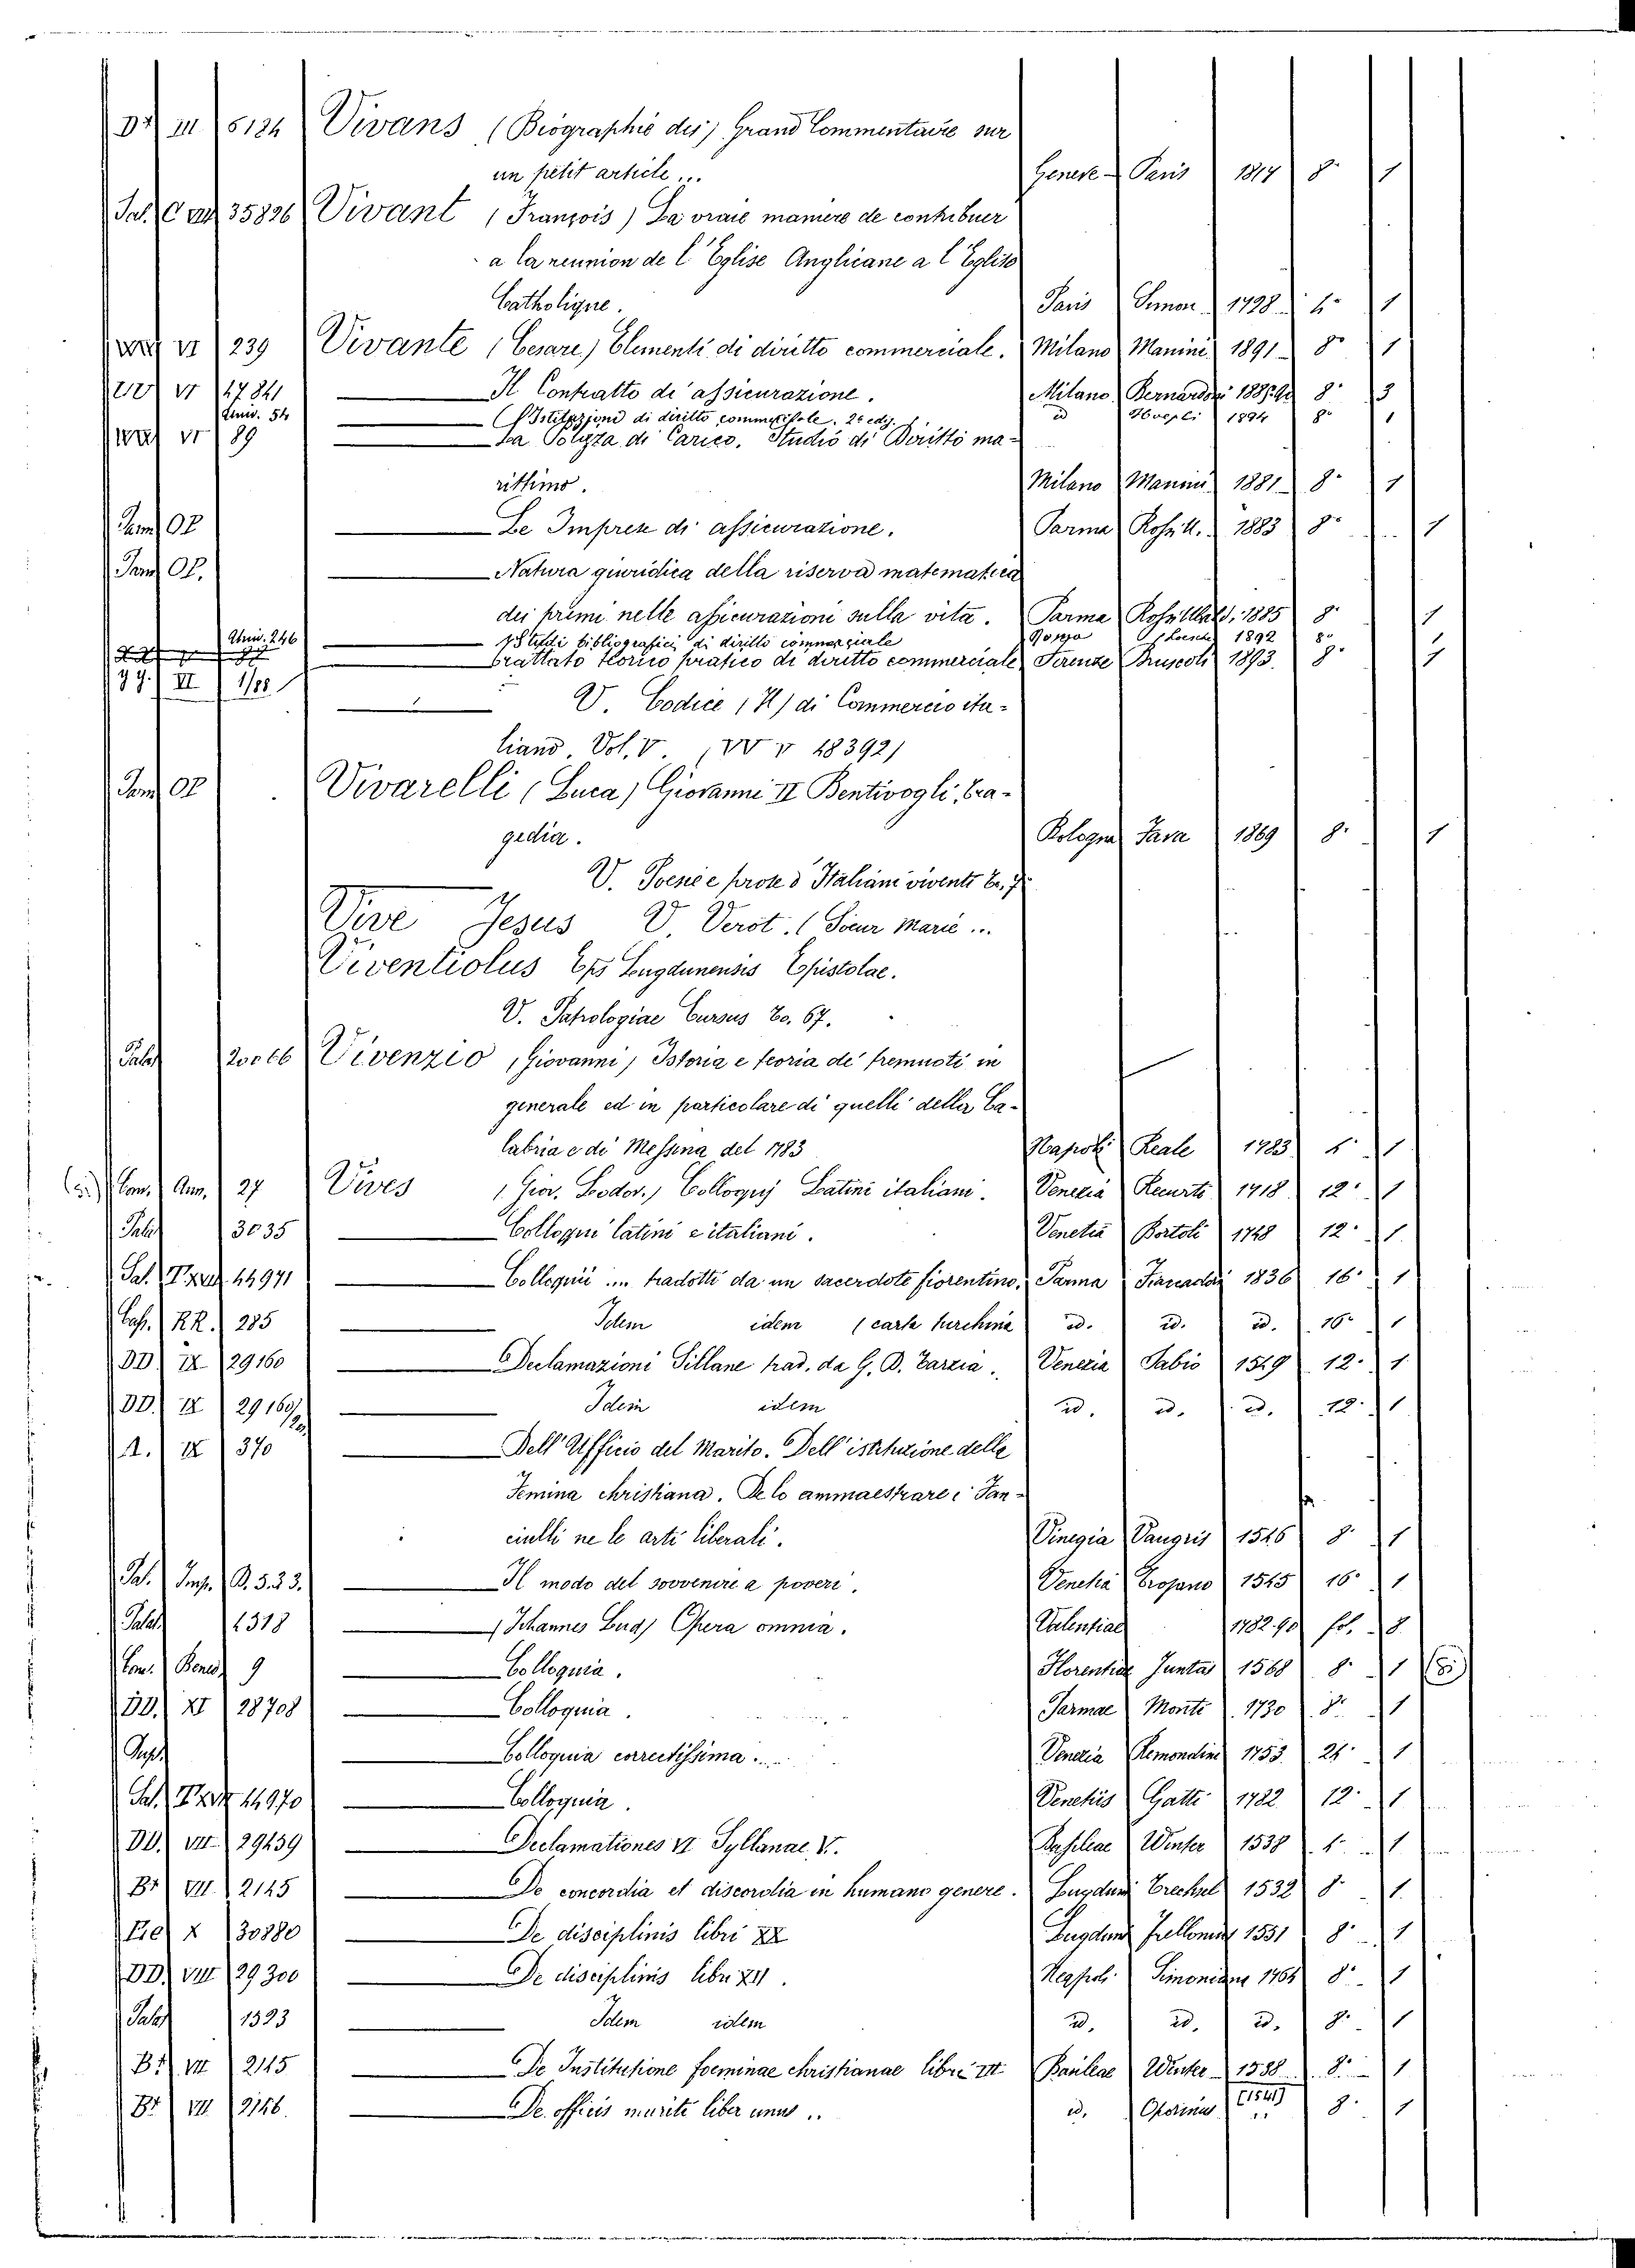 III 5124 Vivans (Biographie des) Grand Commentaire sur
un petit article ... Geneve - Paris 1814 8° 1
35826 Vivant (François) La vraie maniere de contribuer
a la reunion de l'Eglise Anglicane a l'Eglise
Catholique. Paris Simon 1728 4° 1
VI 239 Vivante (Cesare) Elementi di diritto commerciale. Milano Manini 1891 8° 1
VI Il Contratto di assicurazione. Milano Bernardoni 8° 3
Univ. 54 Istituzioni di diritto commerciale. 2ª ediz. id Hoepli 1894 8° 1
VI 89 La Polizza di Carico. Studio di Diritto ma-
rittimo. Milano Manini 1881 8° 1
Le Imprese di assicurazione. Parma 1883 8° 1
Natura giuridica della riserva matematica
dei premi nelle assicurazioni sulla vita. Parma 1885 8° 1
Univ. 246 Studi bibliografici di diritto commerciale Loescher 1892 8° 1
Trattato teorico pratico di diritto commerciale Firenze Bruscoli 1893 8° 1
VI 1/88
V. Codice (Il) di Commercio ita-
liano Vol. V. (VV V 18392)
Vivarelli (Luca) Giovanni II Bentivogli, tra-
gedia. Bologna Fava 1869 8° 1
V. Poesie e prose d'Italiani viventi
Vive Jesus V. Verot. (Soeur Marie ...
Viventiolus Eps Lugdunensis Epistolae.
V. Patrologiae Cursus To. 67.
Palat 20066 Vivenzio (Giovanni) Istoria e teoria de' tremuoti in
generale ed in particolare di quelli della Ca-
labria e di Messina del 1783 Napoli Reale 1783 4° 1
Com. Ann. 27 Vives (Giov. Lodov.) Colloquj Latini italiani. Venezia Recurti 1718 12° 1
Palat 3035 Colloqui latini e italiani. Venetia Bortoli 1748 12° 1
Pal. 14971 Colloquii ... tradotti da un sacerdote fiorentino, Parma Fiaccadori 1836 16° 1
RR. 285 Idem idem (carta turchina id. id. id. 16° 1
DD. IX 29160 Declamazioni Sillane trad. da G. B. Tarzia. Venezia Sabio 1549 12° 1
DD. IX 29160/2 Idem idem id. id. id. 12° 1
A. IX 370 Dell'Ufficio del Marito. Dell'istitutione della
Femina christiana. De lo ammaestrare i Fan-
ciulli ne le arti liberali. Vinegia Vaugris 1546 8° 1
Pal. B.5.2.3. Il modo del sovvenire a poveri. Venetia Trojano 1545 16° 1
Palat 1318 (Iohannes Lud) Opera omnia. Valentiae 1782.90 fol. 8
Com. Bened 9 Colloquia. Florentiae Juntas 1568 8° 1
DD. XI 28708 Colloquia. Parmae Monti 1730 8° 1
Colloquia correctissima ... Venetia Remondini 1753 24° 1
Pal. 14970 Colloquia. Venetiis Gatti 1782 12° 1
DD. VII 29439 Declamationes VI Syllanae V. Basileae Winter 1538 4° 1
VII 2145 De concordia et discordia in humano genere. Lugduni Trechsel 1532 8° 1
X 30880 De disciplinis libri XX Lugduni Frellonius 1551 8° 1
DD. VIII 29300 De disciplinis libri XII. Neapoli Simoniana 1764 8° 1
Palat 1593 Idem idem id. id. id. 8° 1
VII 2145 De Institutione foeminae christianae libri III Basileae Winter 1538 8° 1
VII 2146 De officiis mariti liber unus .. id. Oporinus 8° 1